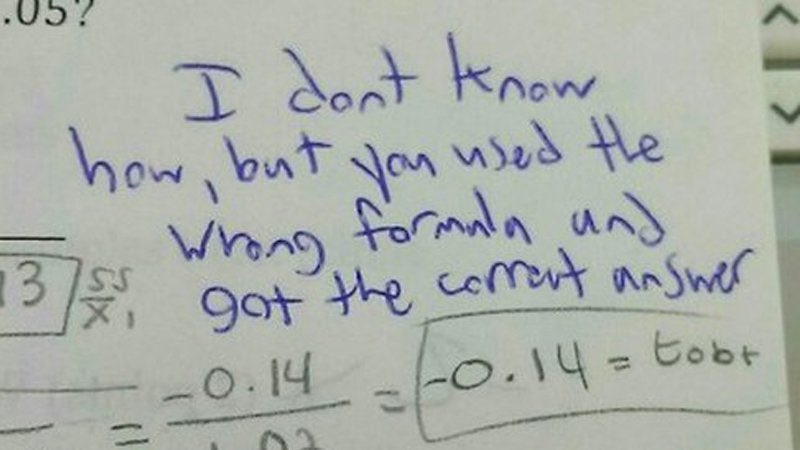 .05?
I dont know
how, but you used the
wrong formula and
got the correct answer
13
SS
X1
= -0.14 = -0.14 = tobt